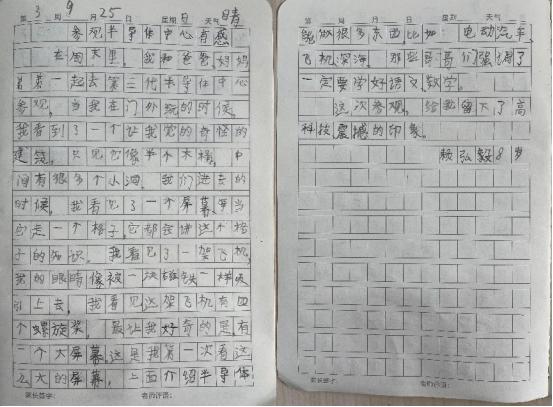 第3周 9月25日 星期日 天气晴
参观半导体中心有感
在周末里，我和爸爸妈妈
着若一起去第三代半导体中心
参观。当我在门外跑的时候，
我看到了一个让我觉的奇怪的
建筑。只见它像半个木桶，中
间有很多个小洞。我们进去的
时候，我看见了一个屏幕，每当
它走一个格子，它都会讲这个格
子的知识。我看见了一架飞机，
我的眼睛像被一块磁铁一样吸
引上去，我看见这架飞机有四
个螺旋桨。最让我好奇的是有
一个大屏幕，这是我第一次看这
么大的屏幕，上面介绍半导体
家长签字： 老师评语：
第 周 月 日 星期 天气
能做很多东西，比如：电动汽车、
飞机深海。那些哥哥们强调了
一定要学好语文、数学。
这次参观，给我留下了高
科技震撼的印象。
赖弘毅8岁
家长签字： 老师评语：